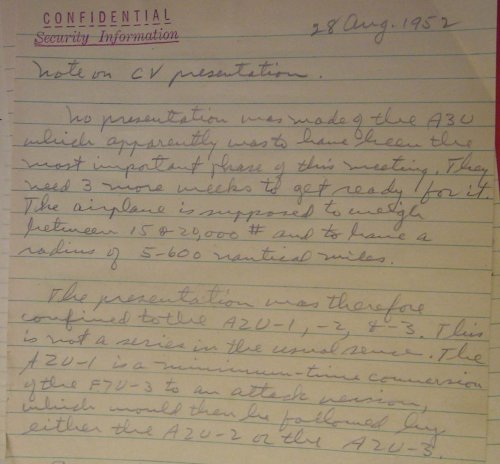 CONFIDENTIAL
Security Information
28 Aug. 1952
Note on CV presentation.
No presentation was made of the A3U
which apparently was to have been the
most important phase of this meeting. They
need 3 more weeks to get ready for it.
The airplane is supposed to weigh
between 15 & 20,000 # and to have a
radius of 5-600 nautical miles.
The presentation was therefore
confined to the A2U-1, -2, & -3. This
is not a series in the usual sense. The
A2U-1 is a minimum-time conversion
of the F7U-3 to an attack version,
which would then be followed by
either the A2U-2 or the A2U-3.